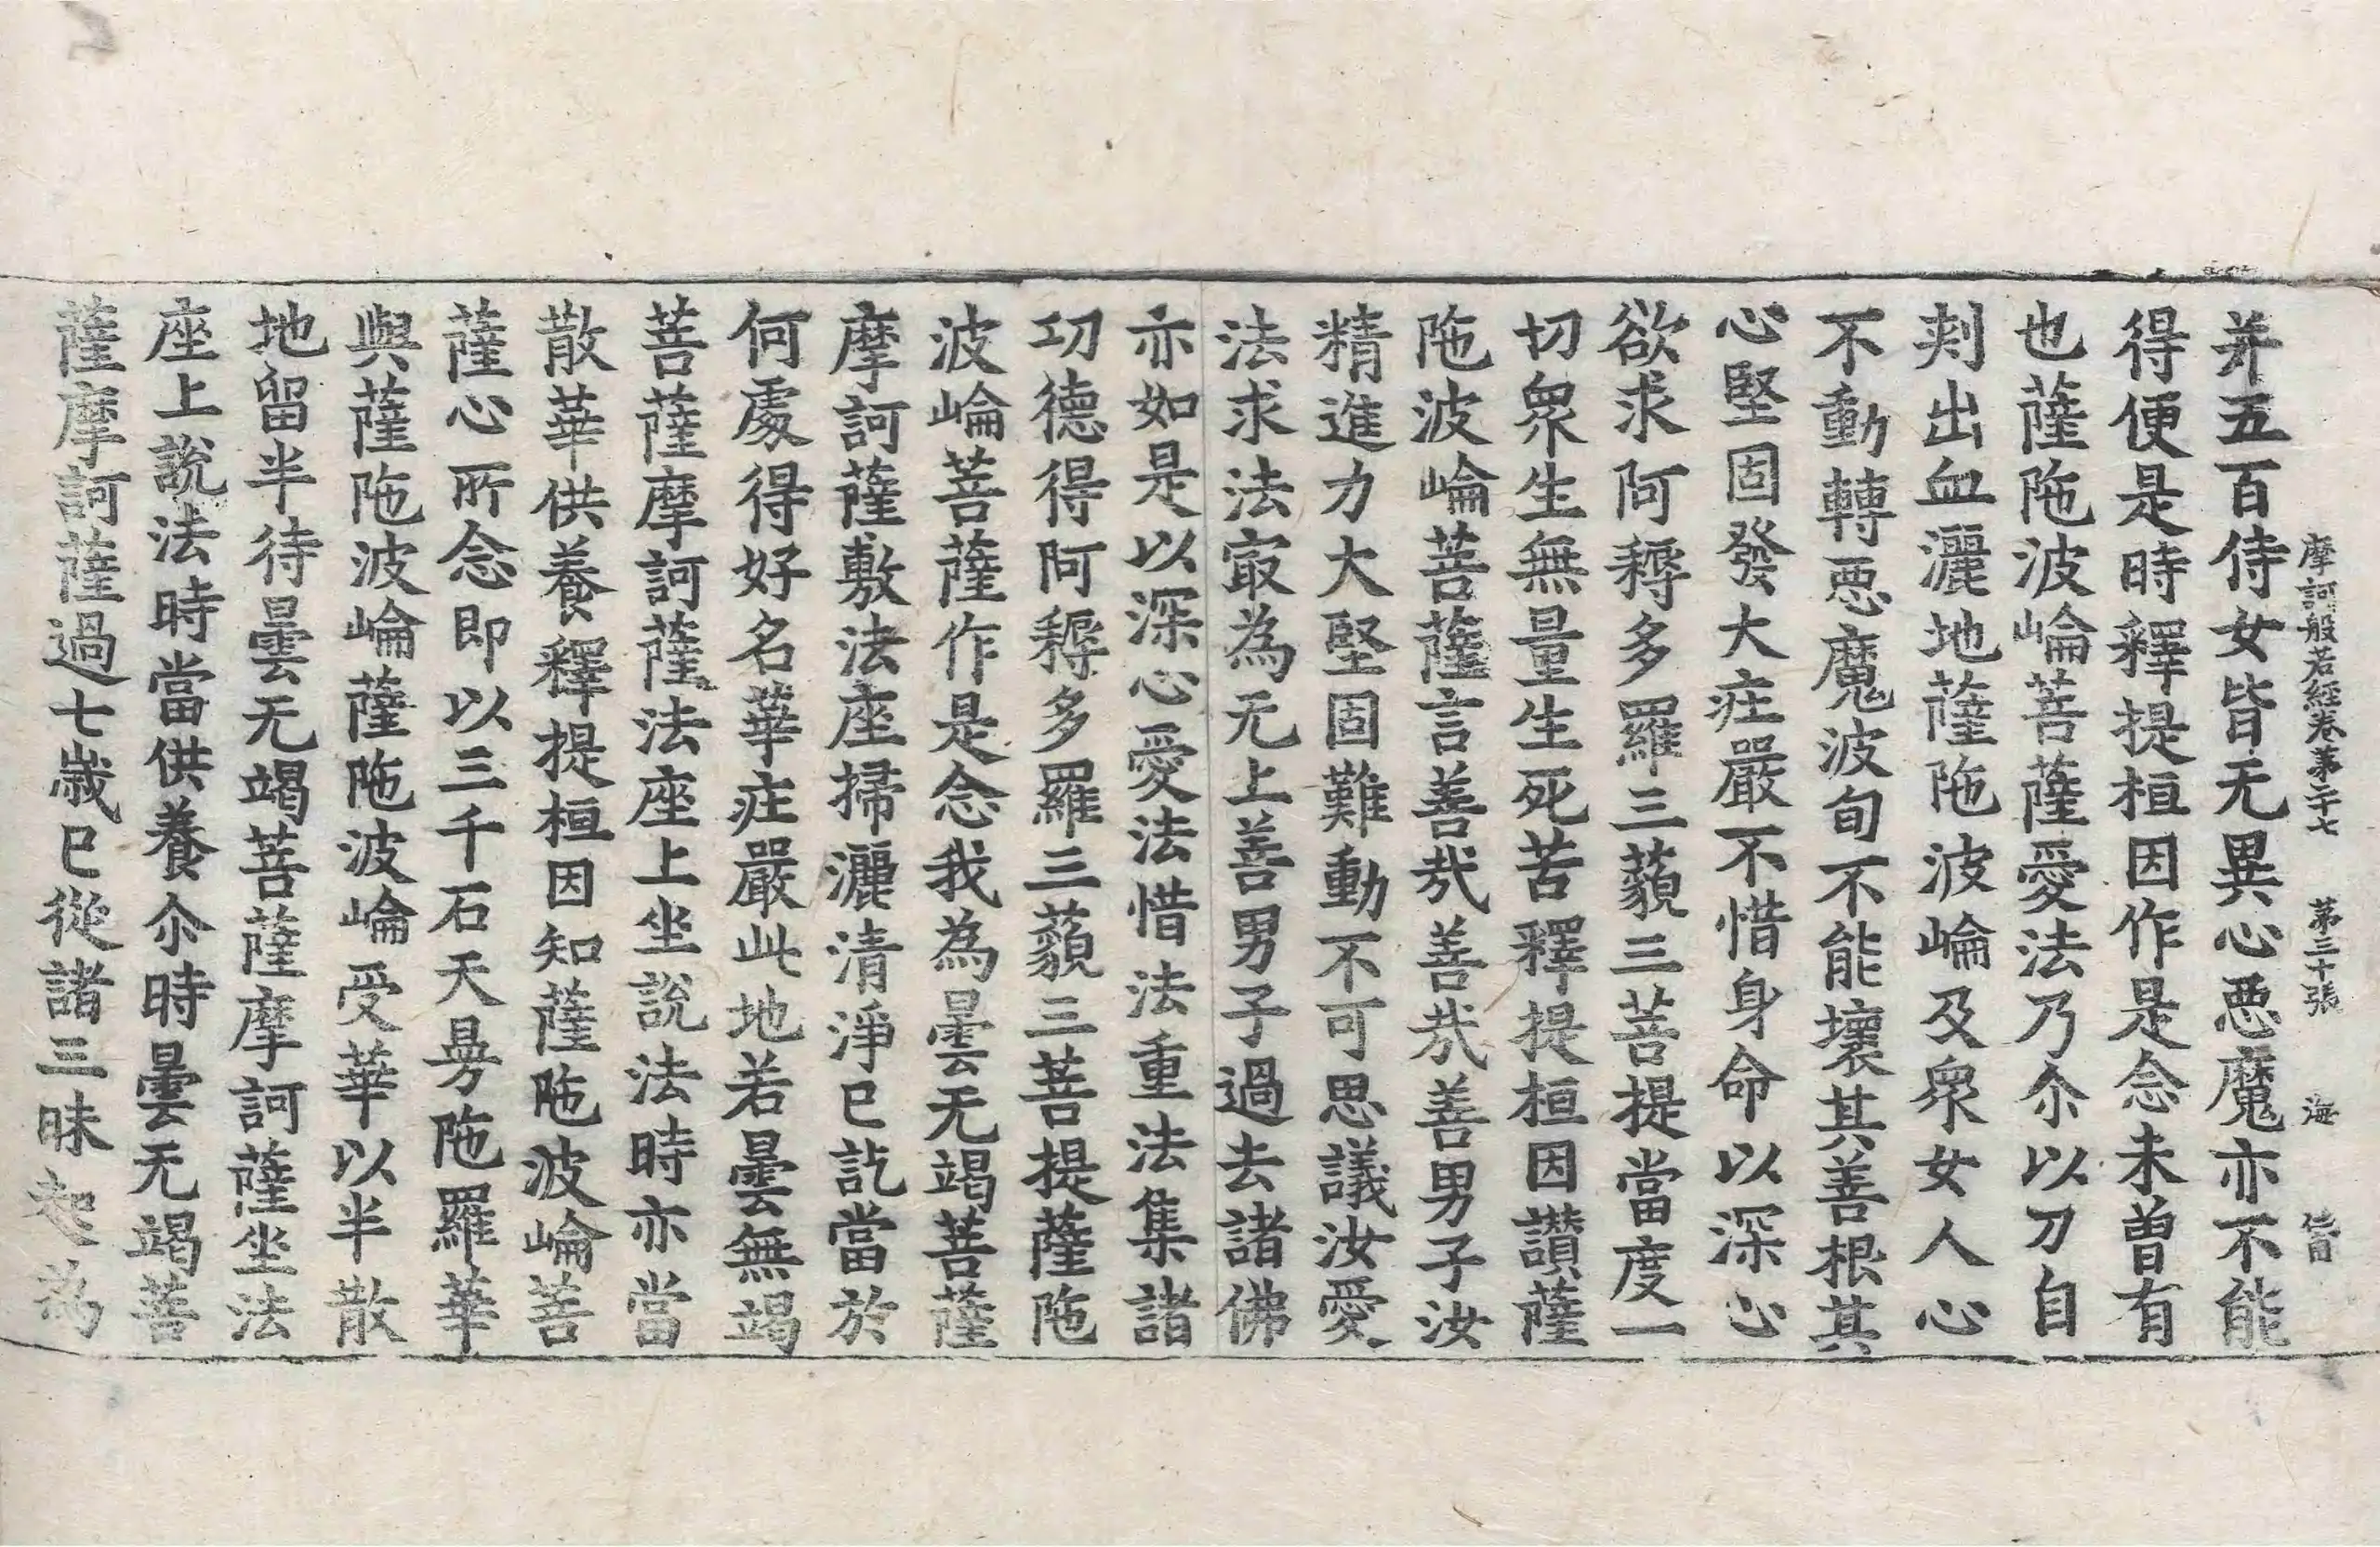 摩訶般若經卷第二十七 第三十張 海
并五百侍女皆无異心惡魔亦不能
得便是時釋提桓因作是念未曾有
也薩陁波崘菩薩愛法乃尒以刀自
刾出血灑地薩陁波崘及衆女人心
不動轉惡魔波旬不能壞其善根其
心堅固發大疘嚴不惜身命以深心
欲求阿耨多羅三藐三菩提當度一
切衆生無量生死苦釋提桓因讚薩
陁波崘菩薩言善㢤善㢤善男子汝
精進力大堅固難動不可思議汝愛
法求法㝡為无上善男子過去諸佛
亦如是以深心愛法惜法重法集諸
功德得阿耨多羅三藐三菩提薩陁
波崘菩薩作是念我為曇无竭菩薩
摩訶薩敷法座掃灑清淨已訖當於
何處得好名華疘嚴此地若曇無竭
菩薩摩訶薩法座上坐說法時亦當
散華供養釋提桓因知薩陁波崘菩
薩心所念即以三千石天㫄陁羅華
與薩陁波崘薩陁波崘受華以半散
地留半待曇无竭菩薩摩訶薩坐法
座上說法時當供養尒時曇无竭菩
薩摩訶薩過七歲已從諸三昧起為